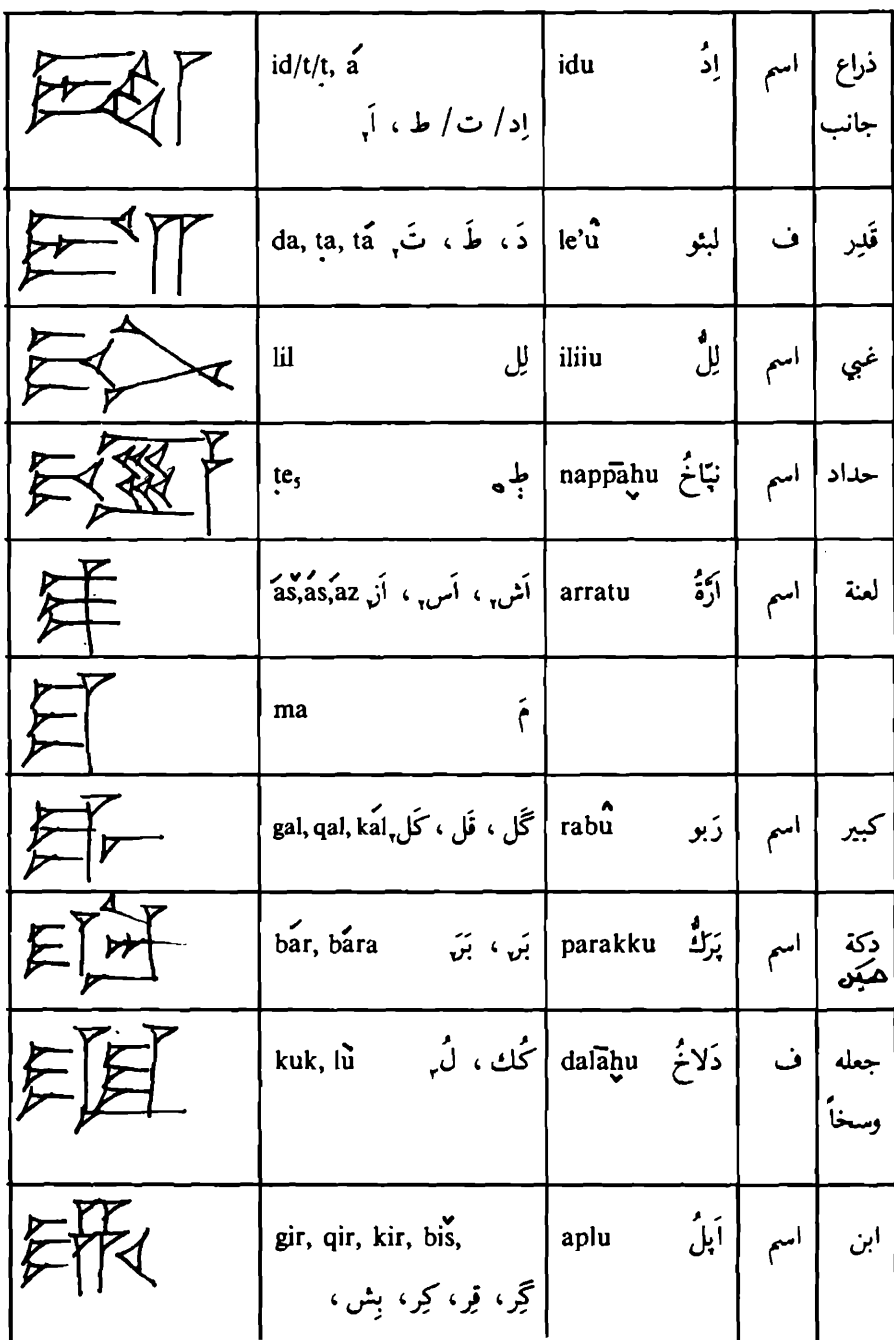 id/t/ṭ, á idu اِدُ اسم ذراع
اِد / ت / ط ، اَ٢ جانب
da, ṭa, tá دَ، طَ ، تَ٢ le'û ليئو ف قَدِر
lil لِل iliiu لِلُّ اسم غبي
ṭe₅ طِ٥ nappāḫu نپّاخُ اسم حداد
áš,ás,áz اَش٢ ، اَس٢ ، اَز٢ arratu اَرَّةُ اسم لعنة
ma مَ
gal, qal, kál گَل ، قَل ، كَل٢ rabû رَبو اسم كبير
bár, bára بَر٢ ، بَرَ٢ parakku پَرَكُّ اسم دكة
kuk, lù كُك ، لُ٣ dalāḫu دَلاخُ ف جعله
وسخاً
gir, qir, kir, biš, aplu اَپلُ اسم ابن
گِر ، قِر ، كِر ، بِش ،